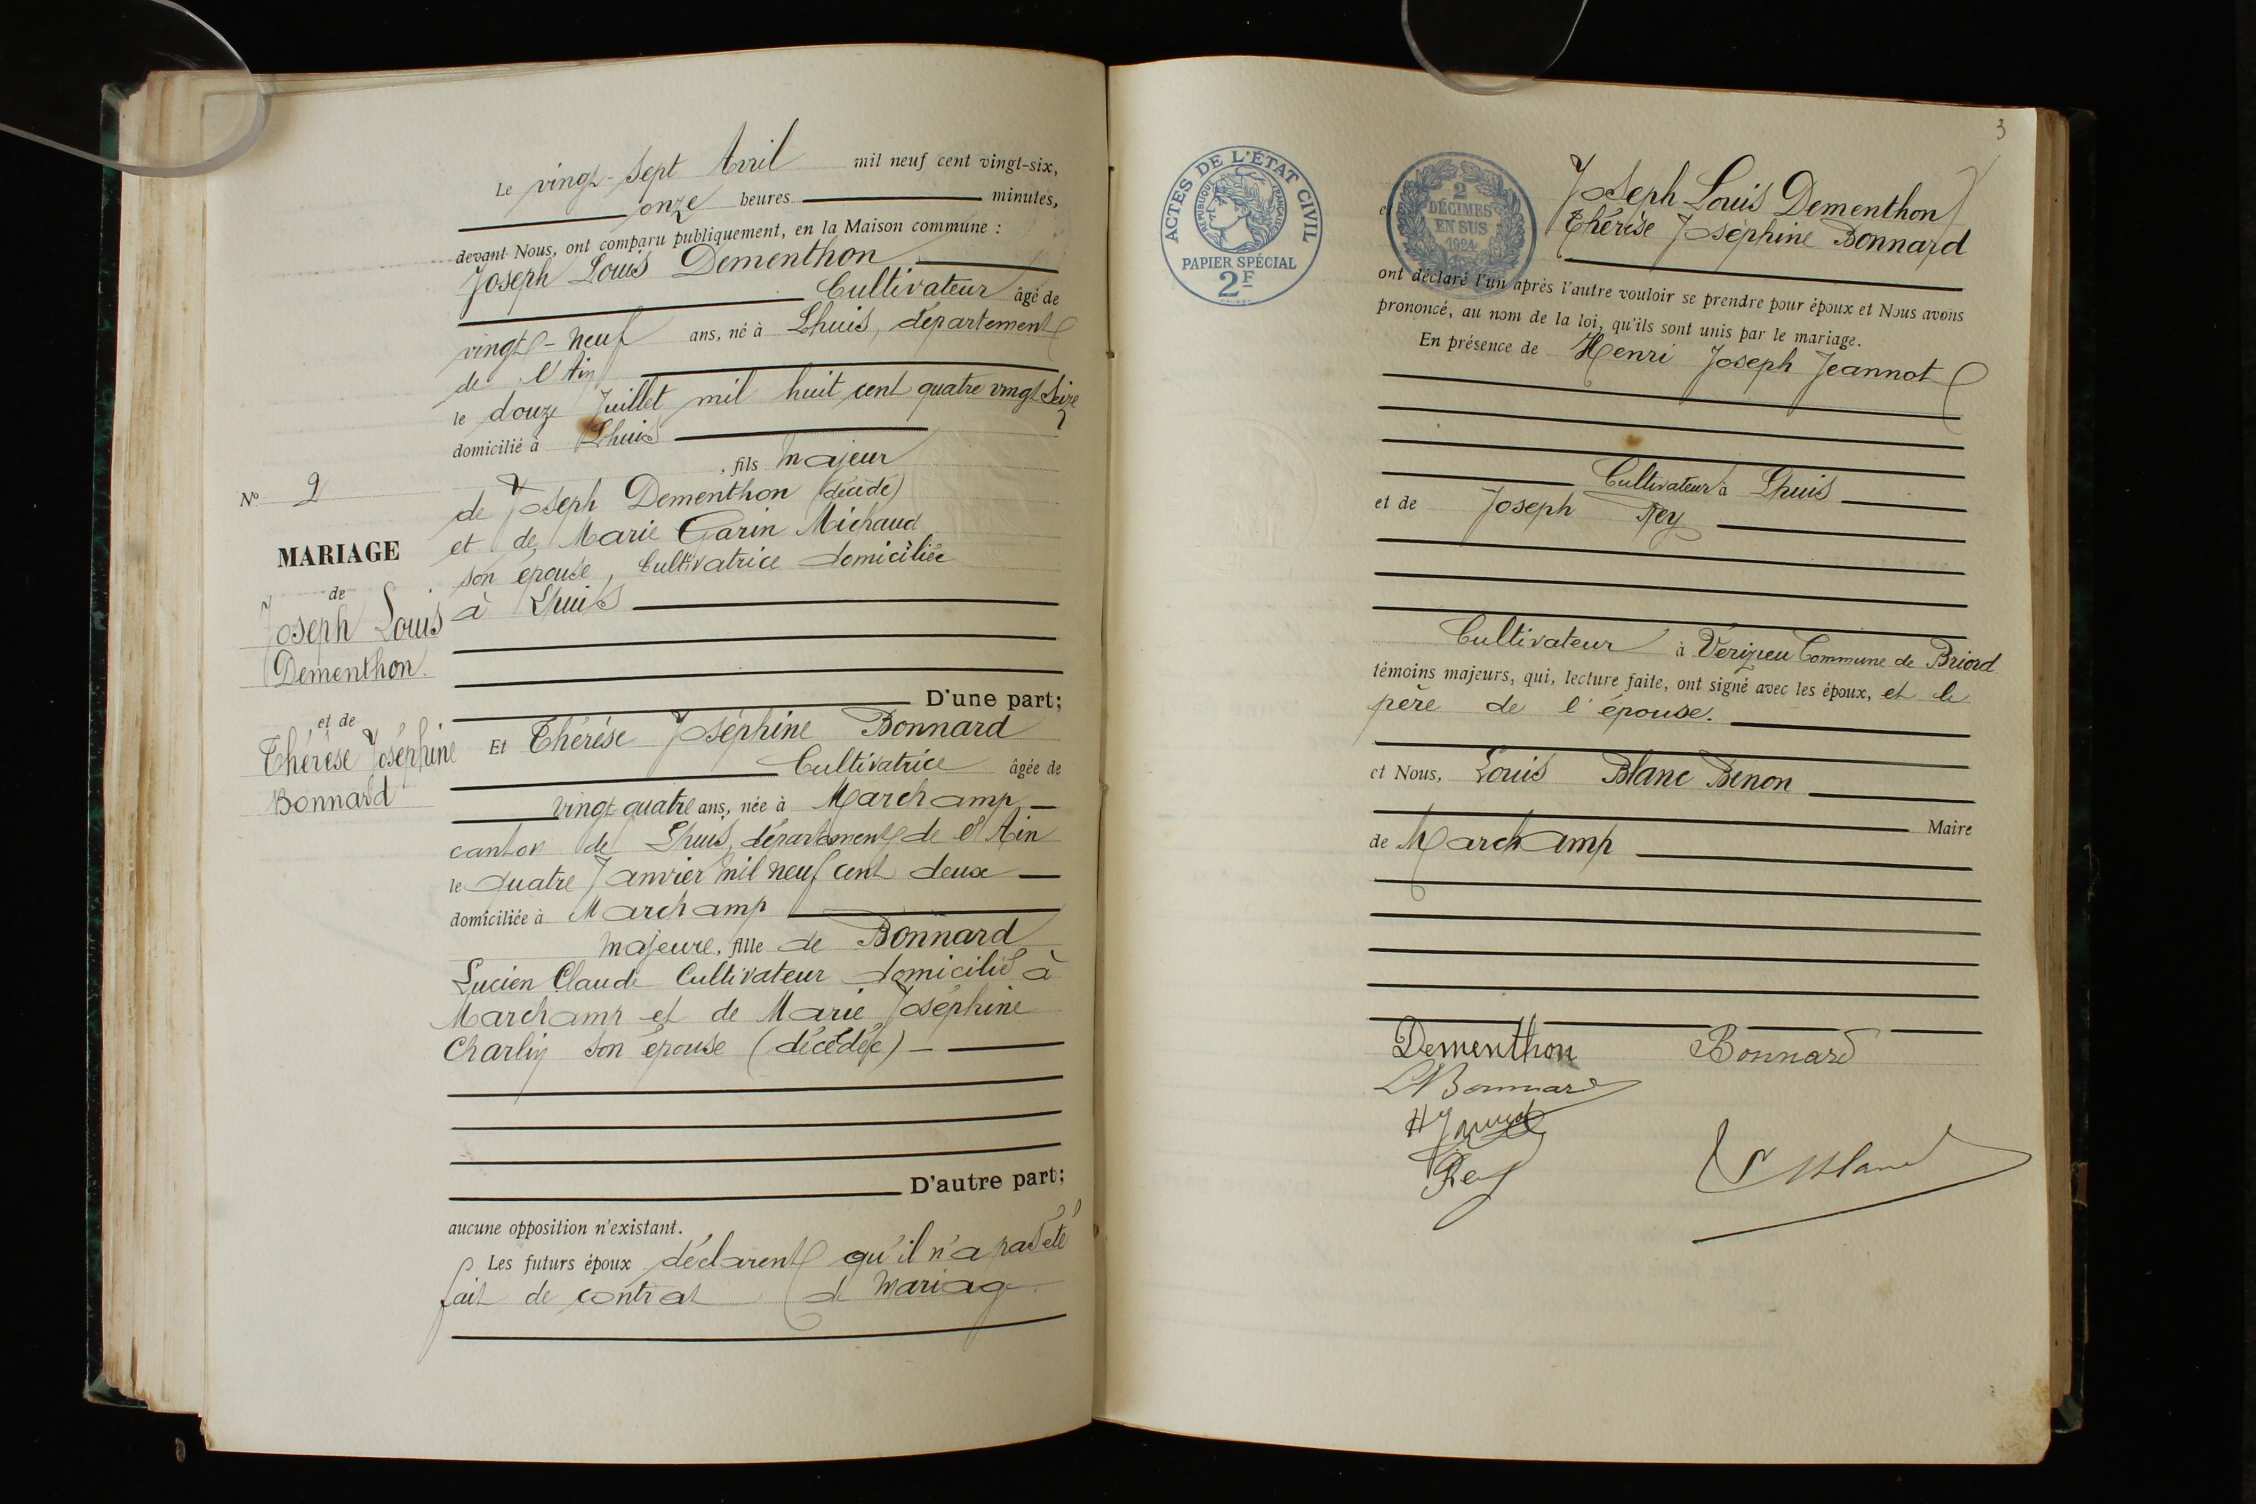 Le vingt-sept Avril mil neuf cent vingt-six,
onze heures minutes,
devant Nous, ont comparu publiquement, en la Maison commune :
Joseph Louis Dementhon
Cultivateur âgé de
vingt-neuf ans, né à Lhuis, département
de l'Ain
le douze Juillet mil huit cent quatre vingt seize
domicilié à Lhuis
, fils majeur
de Joseph Dementhon (décédé)
et de Marie Garin Michaud
son épouse, Cultivatrice domiciliée
à Lhuis
D'une part;
Et Thérèse Joséphine Bonnard
Cultivatrice âgée de
vingt quatre ans, née à Marchamp
canton de Lhuis, département de l'Ain
le quatre Janvier mil neuf cent deux
domiciliée à Marchamp
majeure, fille de Bonnard
Lucien Claude Cultivateur domicilié à
Marchamp et de Marie Joséphine
Charlin son épouse (décédée)
D'autre part;
aucune opposition n'existant.
Les futurs époux déclarent qu'il n'a pas été
fait de contrat de mariage
N° 2
MARIAGE
de
Joseph Louis
Dementhon.
et de
Thérèse Joséphine
Bonnard
3
ACTES DE L'ÉTAT CIVIL
RÉPUBLIQUE FRANÇAISE
PAPIER SPÉCIAL
2F
2
DÉCIMES
EN SUS
1924
Joseph Louis Dementhon
Thérèse Joséphine Bonnard
ont déclaré l'un après l'autre vouloir se prendre pour époux et Nous avons
prononcé, au nom de la loi, qu'ils sont unis par le mariage.
En présence de Henri Joseph Jeannot
Cultivateur à Lhuis
et de Joseph Rey
Cultivateur à Vérizieu Commune de Briord
témoins majeurs, qui, lecture faite, ont signé avec les époux, et le
père de l'épouse.
et Nous, Louis Blanc Benon
Maire
de Marchamp
Dementhon Bonnard
L Bonnard
Rey
L Blanc